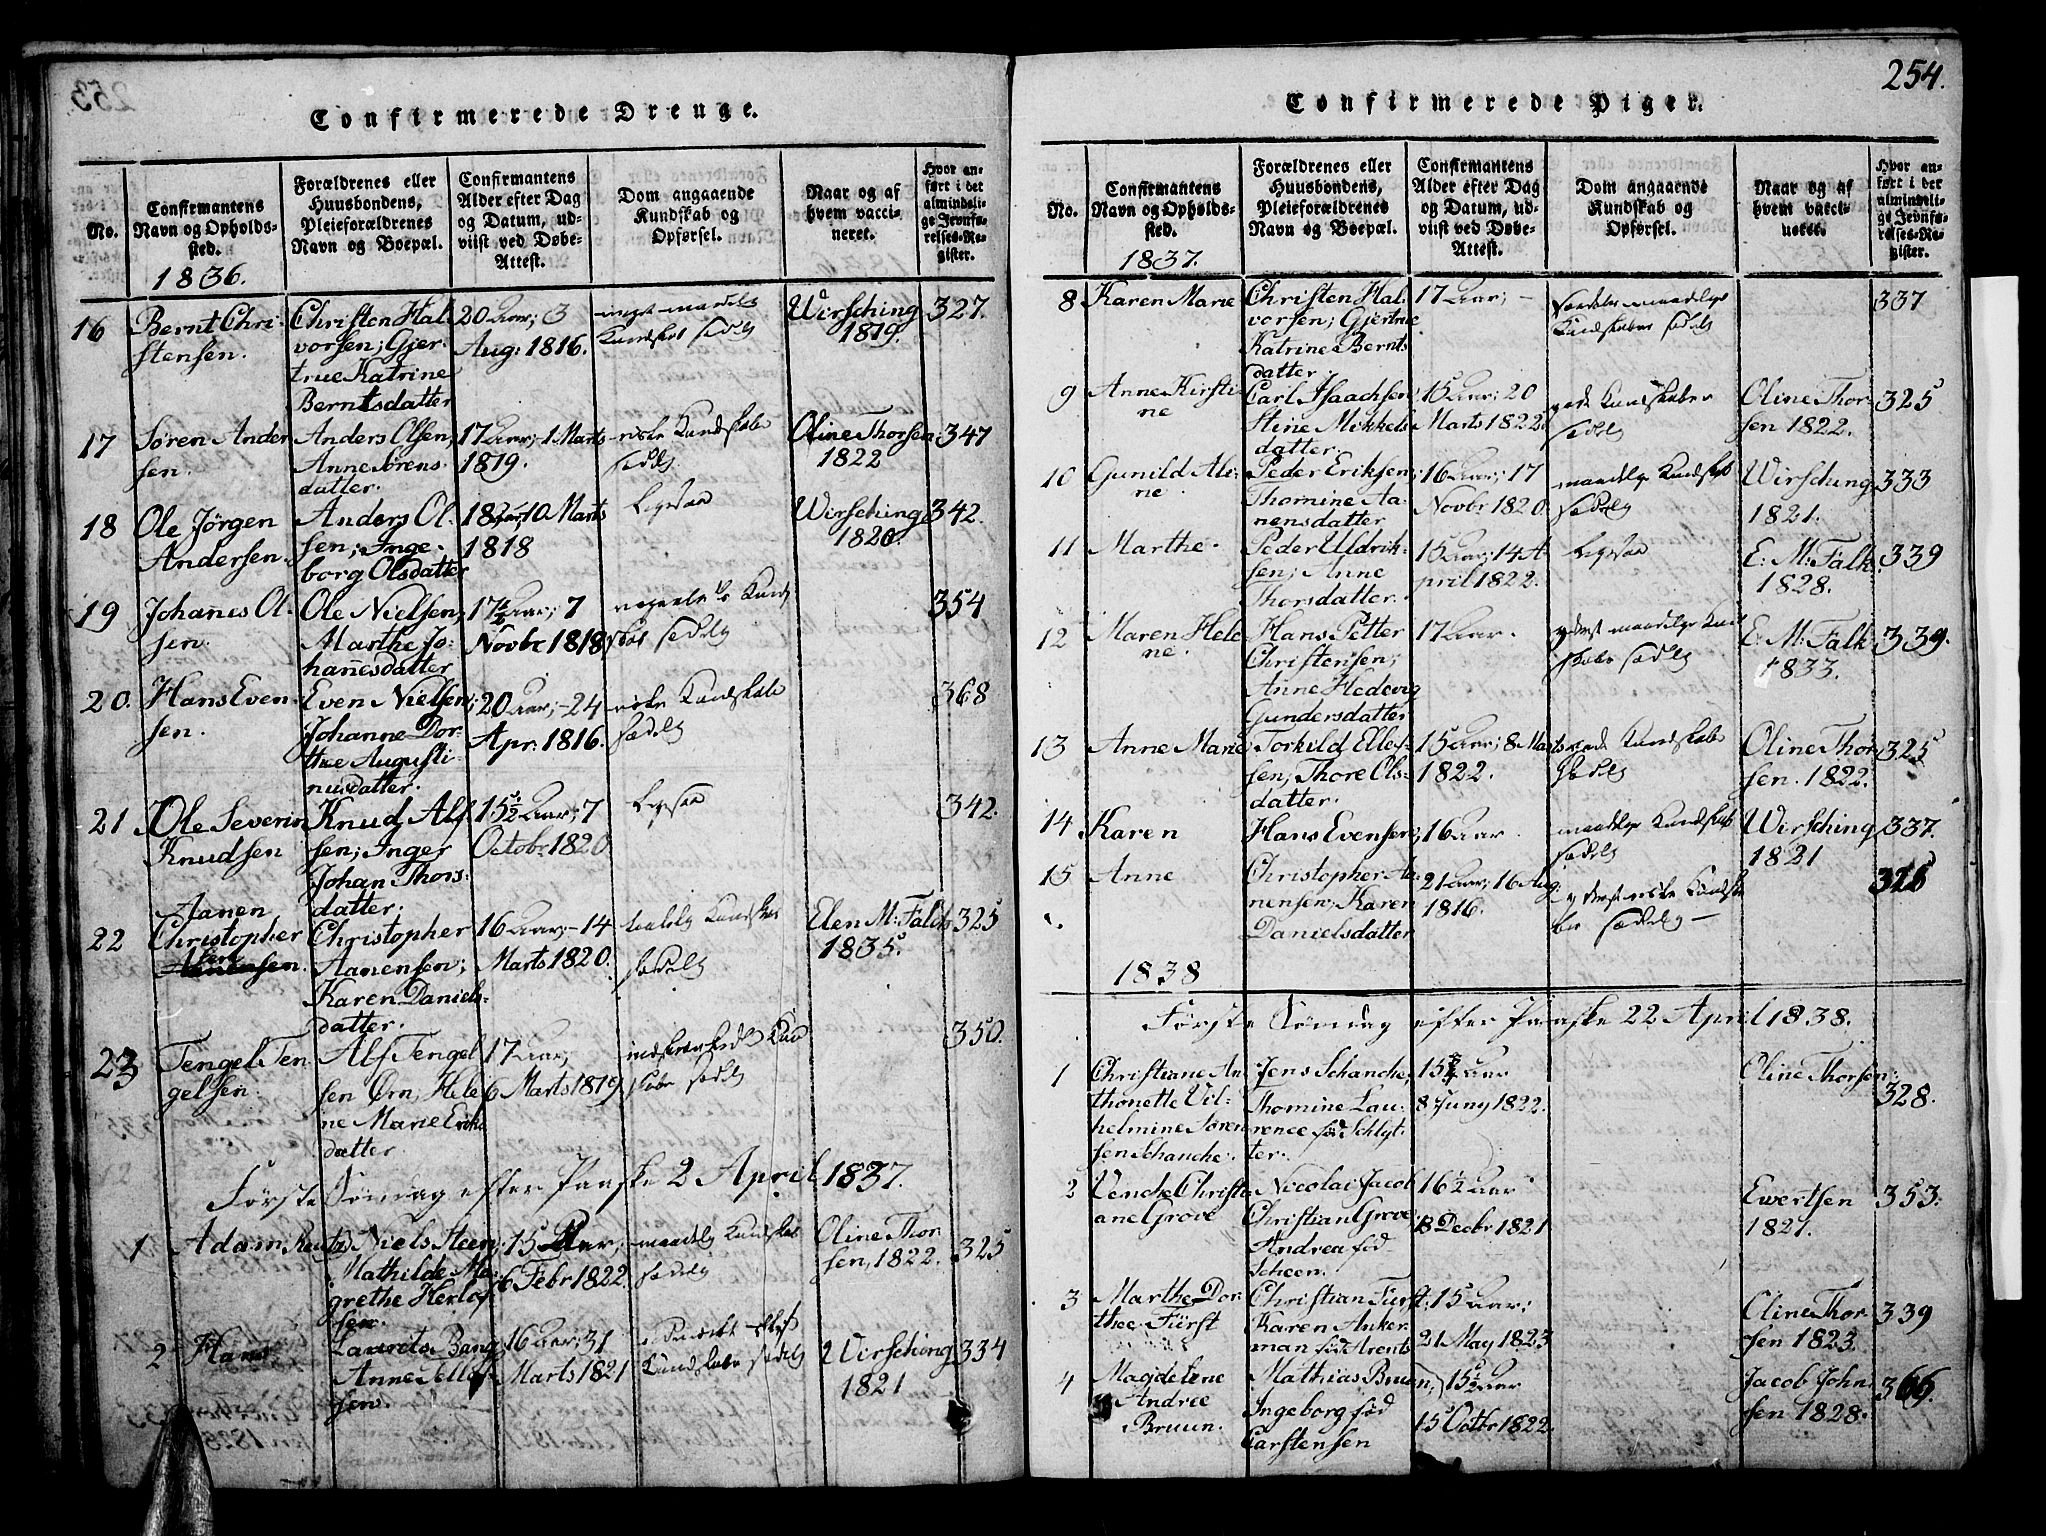 254.
Confirmerede Drenge.
No.
Confirmantens
Navn og Opholds-
sted.
1836.
Forældrenes eller
Huusbondens,
Pleieforældrenes
Navn og Boepæl.
Confirmantens
Alder efter Dag
og Datum, ud-
viist ved Døbe-
Attest.
Dom angaaende
Kundskab og
Opførsel.
Naar og af
hvem vacci-
neret.
Hvor an-
ført i det
almindeli-
ge Jevnfø-
relses-Re-
gister.
16
Bernt Chri-
stensen.
Christen Hal
vorsen; Gjer-
true Katrine
Berntsdatter
20 Aar; 3
Aug: 1816.
Wirsching
1819.
327.
17
Søren Ander
sen.
Anders Olsen,
Anne Sørens-
datter.
17 Aar; 1 Marts
1819.
Oline Thorsen
1822
347
18
Ole Jörgen
Andersen.
Anders Ol-
sen; Inge-
borg Olsdatter
18 Aar; 10 Marts
1818
Ligesaa
Wirsching
1820.
342.
19
Johanes Ol-
sen.
Ole Nielsen,
Marthe Jo-
hanesdatter
17½ Aar; 7
Novbr 1818
354
20.
Hans Even-
sen.
Even Nielsen;
Johanne Dor-
thee Augusti
nusdatter.
20 Aar; - 24
Apr: 1816.
368
21
Ole Severin
Knudsen
Knud Alf
sen; Inger
Johan Thors-
datter.
15½ Aar; 7
Octobr 1820
Ligesaa
342.
22
Aanen
Christopher
sen
Aanensen.
Christopher
Aanensen;
Karen Daniels-
datter.
16 Aar; - 14
Marts 1820.
Elen M: Falck
1835.
325
23
Tengel Ten-
gelsen.
Alf Tengel
sen Ørn; Hele
ne Marie Eriks
datter.
17 Aar;
6 Marts 1819.
350.
Første Søndag efter Paaske 2 April 1837.
1
Adam
Niels Steen;
Mathilde Ma
grethe Herlof
sen.
15 Aar;
6 Febr 1822.
Oline Thor
sen, 1822.
325
2
Hans
Laurets Bang
Anne Ellef
sen.
16 Aar; 31
Marts 1821
Wirsching
1821
334
Confirmerede Piger.
No.
Confirmantens
Navn og Opholds-
sted.
1837.
Forældrenes eller
Huusbondens,
Pleieforældrenes
Navn og Boepæl.
Confirmantens
Alder efter Dag
og Datum, ud-
viist ved Døbe-
Attest.
Dom angaaende
Kundskab og
Opførsel.
Naar og af
hvem vacci-
neret.
Hvor an-
ført i det
almindeli-
ge Jevnfø-
relses-Re-
gister.
8
Karen Marie
Christen Hal-
vorsen; Gjertrue
Katrine Bernts
datter.
17 Aar; -
337
9
Anne Kirsti-
ne
Carl Isaachsen
Stine Mikkels
datter.
15 Aar; 20
Marts 1822.
gode Kundskaber
sædelig
Oline Thor-
sen 1822.
325
10
Gunild Ale-
ne.
Peder Eriksen;
Thomine Aa-
nensdatter
16 Aar; 17
Novbr 1820.
maadelig Kundskab
sædelig
Wirsching
1821.
333
11
Marthe.
Peder Uldrik-
sen; Anne
Thorsdatter.
15 Aar; 14 A-
pril 1822.
Ligesaa
E: M: Falk
1828.
339
12
Maren Hele
ne.
Hans Petter
Christensen;
Anne Hedevig
Gundersdatter
17 Aar.
E: M: Falk
1833.
339.
13
Anne Marie
Torkild Ellef-
sen; Thore Ols-
datter.
15 Aar; 8 Marts
1822.
gode Kundskaber
sædelig
Oline Thor
sen. 1822.
325
14
Karen
Hans Evensen;
16 Aar
maadelige Kundskab
sædelig
Wirsching
1821
337.
15.
Anne
Christopher Aa-
nensen; Karen
Danielsdatter
21 Aar; 16 Aug:
1816.
1838
Første Søndag efter Paaske 22 April 1838.
1
Christiane An
thonette Vil-
helmine Søren
sen Schanche.
Jens Schanche;
Thomine Lau-
rence fød Schlyt-
ter.
Aar
8 Juny 1822.
Oline Thorsen:
328.
2
Venche Christi
ane Grove
Nicolai Jacob
Christian Grove;
Andrea fød
Scheen.
16½ Aar
13 Decbr 1821
Ewertsen
1821.
353.
3
Marthe Dor-
thee Fürst
Christian Fürst;
Karen Anker
man fød Arents
15 Aar;
21 May 1823
Oline Thor
sen 1823.
339
4
Magdelene
Andree
Bruun.
Mathias Bruun;
Ingeborg fød
Carstensen
15½ Aar
15 Octbr 1822.
Jacob John
sen 1828.
366.